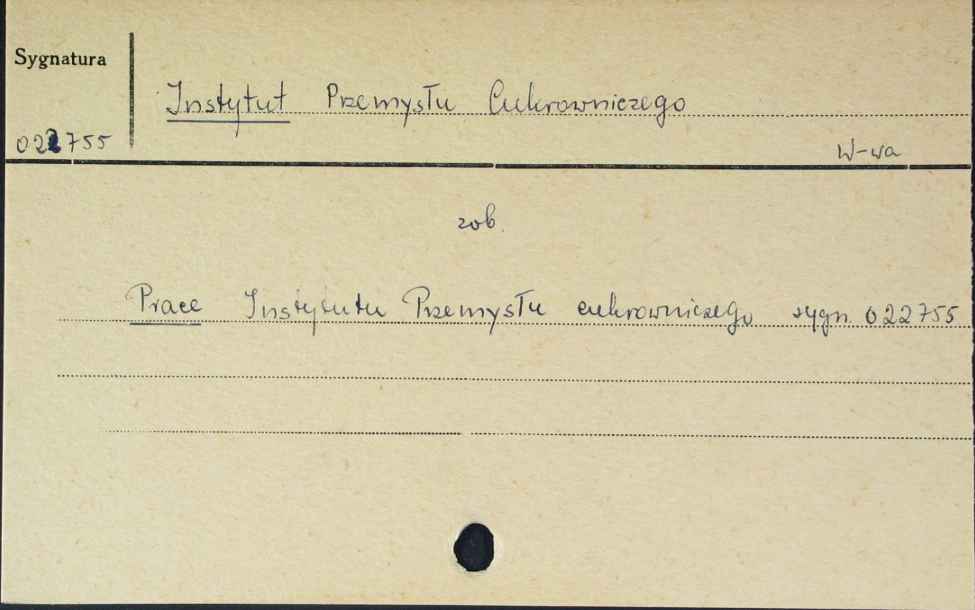 Sygnatura
Instytut Przemysłu Cukrowniczego
022755
W-wa
zob.
Prace Instytutu Przemysłu cukrowniczego sygn. 022755